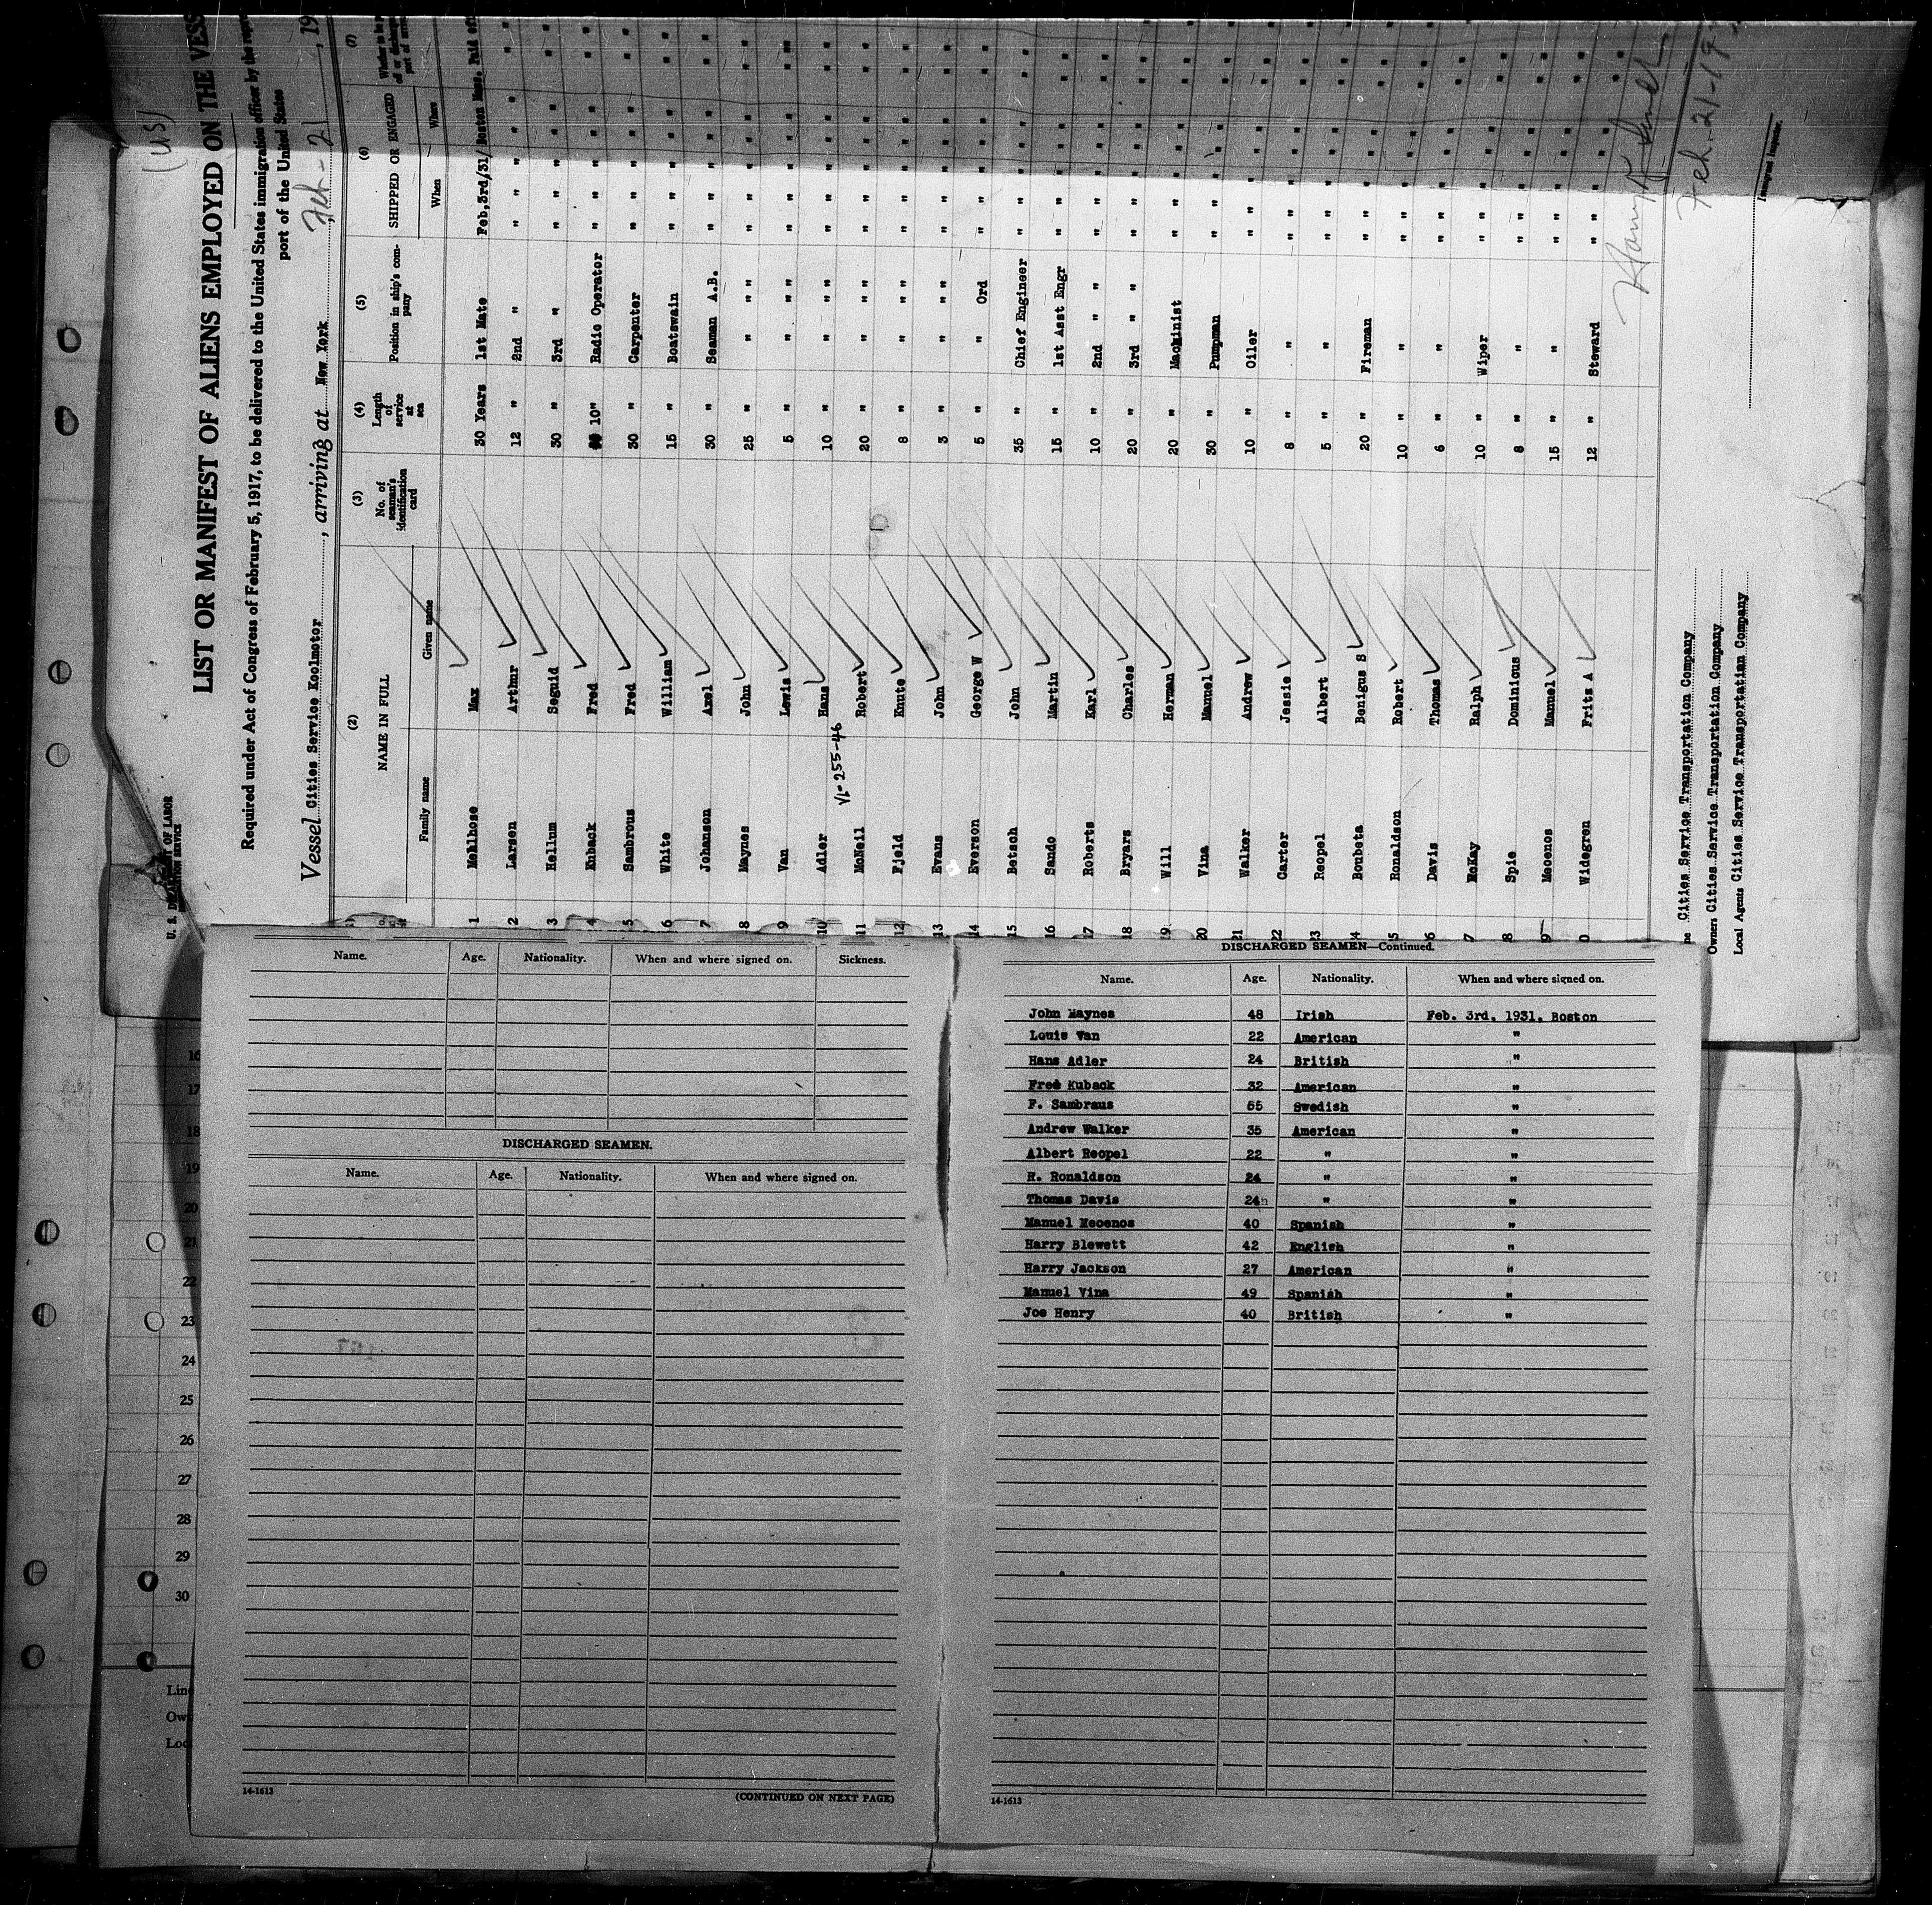 U. S. DEPARTMENT OF LABOR
(US)
LIST OR MANIFEST OF ALIENS EMPLOYED ON THE VESS
Required under Act of Congress of February 5, 1917, to be delivered to the United States immigration officer by the
port of the United States
Vessel Cities Service Koolmotor, arriving at New York, Feb-21, 19
(2) (3) (4) (5) (6) (7)
NAME IN FULL No. of seaman's identification card Length of service at sea Position in ship's company SHIPPED OR ENGAGED
Family name Given name When Where
1 Mehlhose Max 30 Years 1st Mate Feb,3rd/31/ Boston Mass. Paid off
2 Larsen Arthur 12 " 2nd " " " "
3 Hellum Seguid 30 " 3rd " " " "
4 Kuback Fred 10" Radio Operator " " "
5 Sambrous Fred 30 " Carpenter " " "
6 White William 15 " Boatswain " " "
7 Johanson Axel 30 " Seaman A.B. " " "
8 Maynes John 25 " " " " " " "
9 Van Lewis 5 " " " " " " "
10 Adler Hans 10 " " " " " " "
VL-255-46
11 McNeil Robert 20 " " " " " " "
12 Fjeld Knute 8 " " " " " " "
13 Evans John 3 " " " " " " "
14 Everson George W 5 " " Ord " " "
15 Betsch John 35 " Chief Engineer " " "
16 Sando Martin 15 " 1st Asst Engr " " "
17 Roberts Karl 10 " 2nd " " " " "
18 Bryars Charles 20 " 3rd " " " " "
19 Will Herman 20 " Machinist " " "
20 Vina Manuel 30 " Pumpman " " "
21 Walker Andrew 10 " Oiler " " "
22 Carter Jessie 8 " " " " "
3 Reopel Albert 5 " " " " "
4 Boubeta Benigus S 20 " Fireman " " "
5 Ronaldson Robert 10 " " " " "
6 Davis Thomas 6 " " " " "
7 McKay Ralph 10 " Wiper " " "
8 Spie Dominicus 8 " " " " "
9 Meoenos Manuel 15 " " " " "
0 Widegren Fritz A 12 " Steward " " "
ne Cities Service Transportation Company
Owners Cities Service Transportation Company
Local Agents Cities Service Transportation Company
Feb. 21-19
Immigrant Inspector.
Name. Age. Nationality. When and where signed on. Sickness.
DISCHARGED SEAMEN.
Name. Age. Nationality. When and where signed on.
14-1613
(CONTINUED ON NEXT PAGE)
DISCHARGED SEAMEN—Continued.
Name. Age. Nationality. When and where signed on.
John Maynes 48 Irish Feb. 3rd. 1931. Boston
Louis Van 22 American "
Hans Adler 24 British "
Fred Kuback 32 American "
F. Sambraus 55 Swedish "
Andrew Walker 35 American "
Albert Reopel 22 " "
R. Ronaldson 24 " "
Thomas Davis 24 " "
Manuel Meoenos 40 Spanish "
Harry Blewett 42 English "
Harry Jackson 27 American "
Manuel Vina 49 Spanish "
Joe Henry 40 British "
14-1613
16
17
18
19
20
21
22
23
24
25
26
27
28
29
30
Line
Ow
Loc